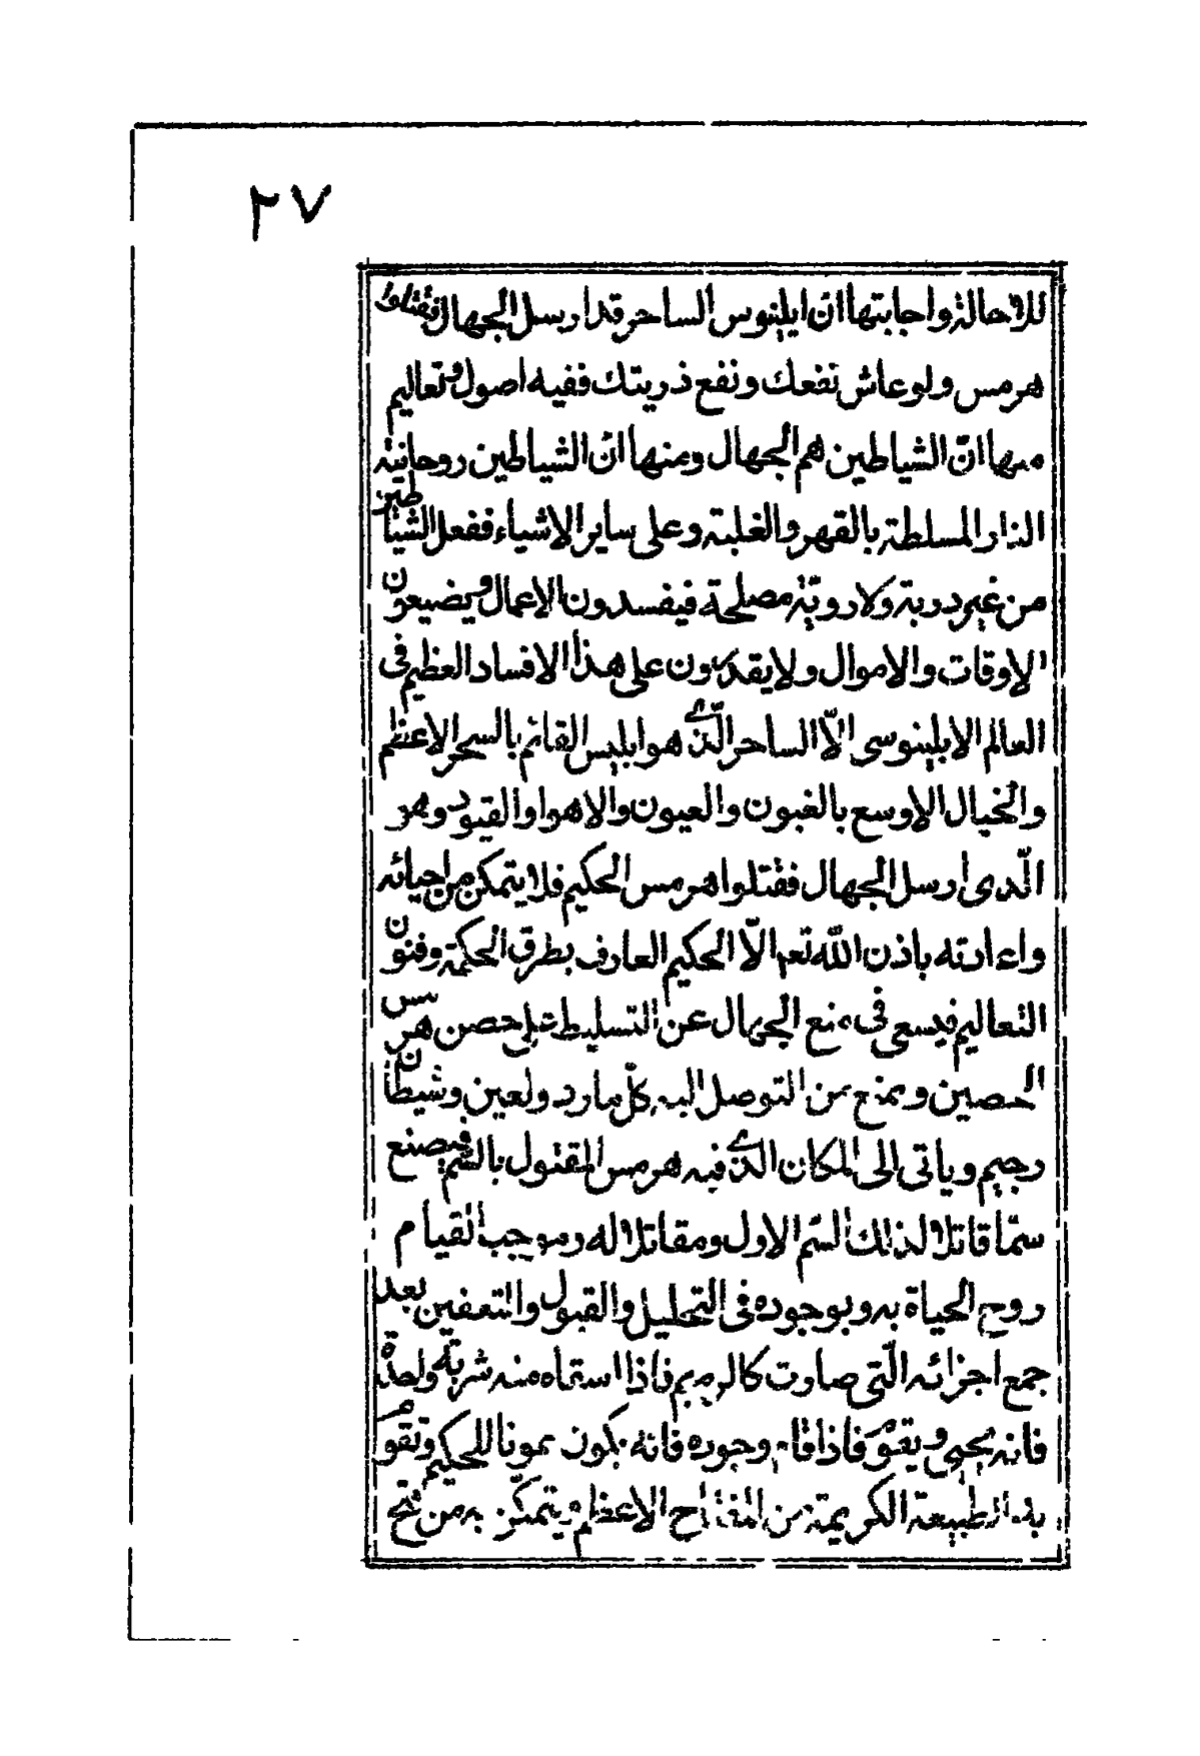 ٢٧
للاحالة واجابتها ان ايلينوس الساحر قد ارسل الجهال فقتلوا
هرمس ولو عاش نفعك ونفع ذريتك ففيه اصول وتعاليم
منها انّ الشياطين هم الجهال ومنها انّ الشياطين روحانية
النار المسلطة بالقهر والغلبة وعلى ساير الاشياء ففعل الشياطين
من غير دربة ولا رويّة مصلحة فيفسدون الاعمال ويضيعون
الاوقات والاموال ولا يقدرون على هذا الافساد العظيم في
العالم الابلينوسى الّا الساحر الّذي هو ابليس القائم بالسحر الاعظم
والخيال الاوسع بالغبون والعيون والاهوا والقيود وهو
الّدى ارسل الجهال فقتلوا هرمس الحكيم فلا يتمكن من احيائه
واعادته باذن الله تعم الّا الحكيم العارف بطرق الحكمة وفنون
التعاليم فيسعى فى منع الجهال عن التسليط على حصن هرمس
الحصين ويمنع من التوصل اليه كلّ مارد ولعين وشيطان
رجيم وياتى الى المكان الذي فيه هرمس المقتول بالسّم فيصنع
سمّا قاتلا لذلك السّم الاول ومقاتلا له وموجب القيام
روح الحياة به وبوجوده فى التحليل والقبول والتعفين بعد
جمع اجزائه الّتى صارت كالرميم فاذا استماه منه شربة واحدة
فانه يحيى ويقوم فاذا قام وجوده فانه يكون عونا للحكيم وتقوم
به الطبيعة الكريمة من المفتاح الاعظم ويتمكّن به من فتح